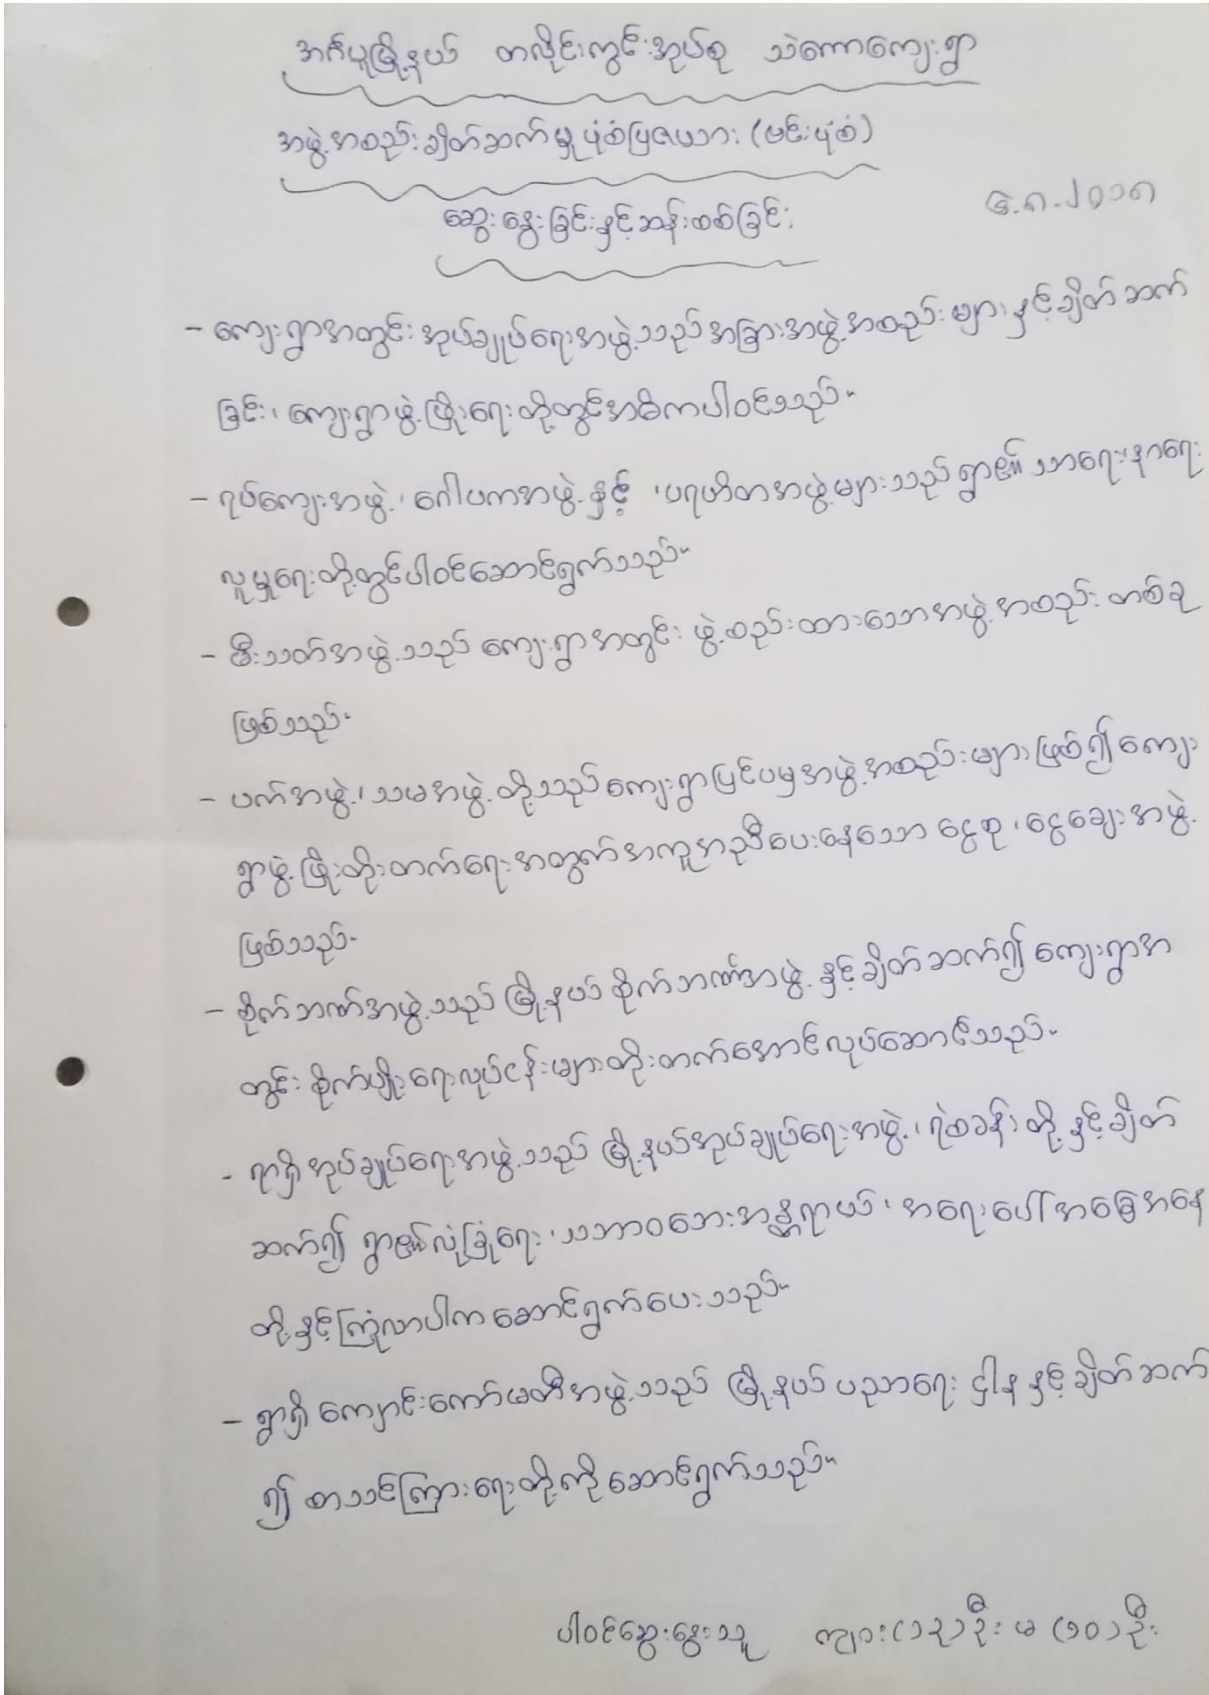 အင်္ဂပူမြို့နယ် တလိုင်းကွင်းအုပ်စု သဲကောကျေးရွာ
အဖွဲ့အစည်းချိတ်ဆက်မှုပုံစံပြဇယား (ဗင်းပုံစံ)
ဆွေးနွေးခြင်းနှင့်ဆန်းစစ်ခြင်း
၆.၈.၂၀၁၈
- ကျေးရွာအတွင်းအုပ်ချုပ်ရေးအဖွဲ့သည်အခြားအဖွဲ့အစည်းများနှင့်ချိတ်ဆက်
ခြင်း၊ ကျေးရွာဖွံ့ဖြိုးရေးတို့တွင်အဓိကပါဝင်သည်။
- ရပ်ကျေးအဖွဲ့၊ ဂေါပကအဖွဲ့နှင့် ၊ပရဟိတအဖွဲ့များသည်ရွာ၏ သာရေး၊နာရေး
လူမှုရေးတို့တွင်ပါဝင်ဆောင်ရွက်သည်။
- မီးသတ်အဖွဲ့သည် ကျေးရွာအတွင်း ဖွဲ့စည်းထားသောအဖွဲ့အစည်း တစ်ခု
ဖြစ်သည်။
- ပက်အဖွဲ့၊ သမအဖွဲ့တို့သည်ကျေးရွာပြင်ပမှအဖွဲ့အစည်းများဖြစ်၍ကျေး
ရွာဖွံ့ဖြိုးတိုးတက်ရေးအတွက်အကူအညီပေးနေသော ငွေစု၊ ငွေချေးအဖွဲ့
ဖြစ်သည်။
- စိုက်ဘဏ်အဖွဲ့သည် မြို့နယ်စိုက်ဘဏ်အဖွဲ့နှင့်ချိတ်ဆက်၍ ကျေးရွာအ
တွင်း စိုက်ပျိုးရေးလုပ်ငန်းများတိုးတက်အောင်လုပ်ဆောင်သည်။
- ရာရှိအုပ်ချုပ်ရေးအဖွဲ့သည် မြို့နယ်အုပ်ချုပ်ရေးအဖွဲ့၊ ရဲစခန်းတို့နှင့်ချိတ်
ဆက်၍ ရွာ၏လုံခြုံရေး၊သဘာဝဘေးအန္တရာယ်၊ အရေးပေါ်အခြေအနေ
တို့နှင့်ကြုံလာပါကဆောင်ရွက်ပေးသည်။
- ရွာရှိကျောင်းကော်မတီအဖွဲ့သည် မြို့နယ် ပညာရေး ဌါန နှင့်ချိတ်ဆက်
၍ စာသင်ကြားရေးတို့ကိုဆောင်ရွက်သည်။
ပါဝင်ဆွေးနွေးသူ ကျား(၁၃)ဦး မ (၁၀)ဦး